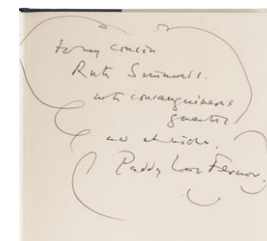 to my cousin
Ruth Simmons.
with consanguineous
greetings
and
Paddy Leigh Fermor.